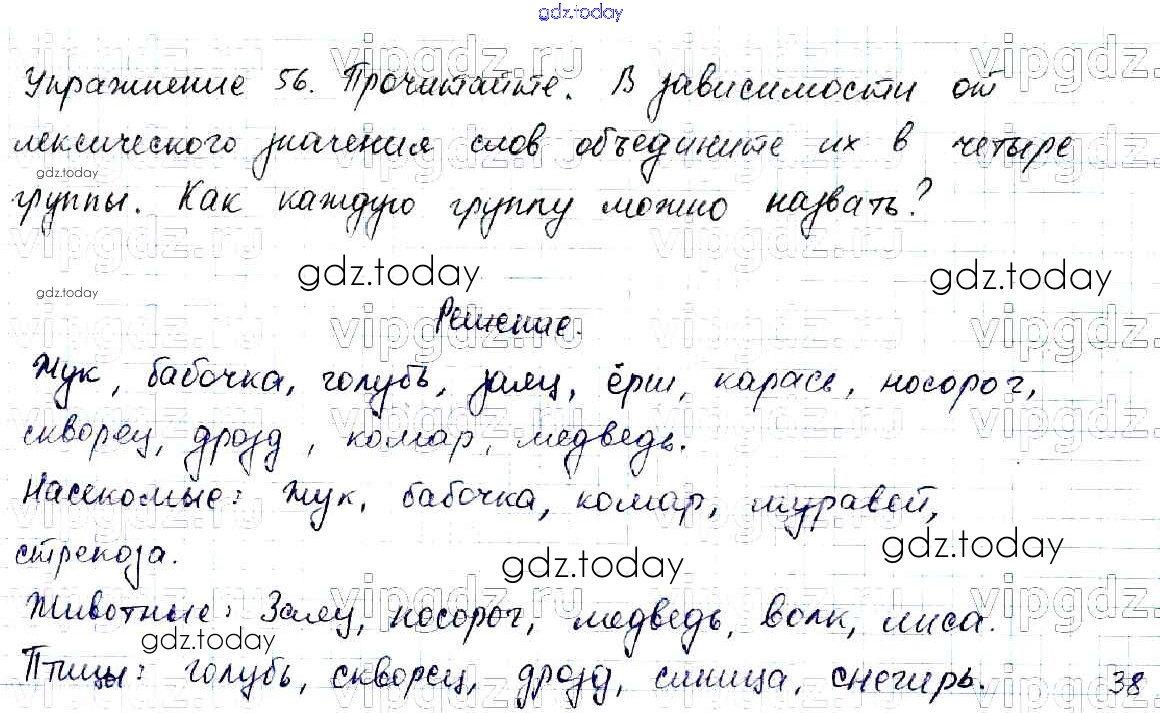 gdz.today
Упражнение 56. Прочитайте. В зависимости от
лексического значения слов объедините их в четыре
gdz.today
группы. Как каждую группу можно назвать?
gdz.today
gdz.today
gdz.today
Решение.
Жук, бабочка, голубь, заяц, ёрш, карась, носорог,
скворец, дрозд, комар, медведь.
Насекомые: жук, бабочка, комар, муравей,
стрекоза.
gdz.today
gdz.today
Животные: Заяц, носорог, медведь, волк, лиса.
gdz.today
Птицы: голубь, скворец, дрозд, синица, снегирь.
38
vipgdz.ru